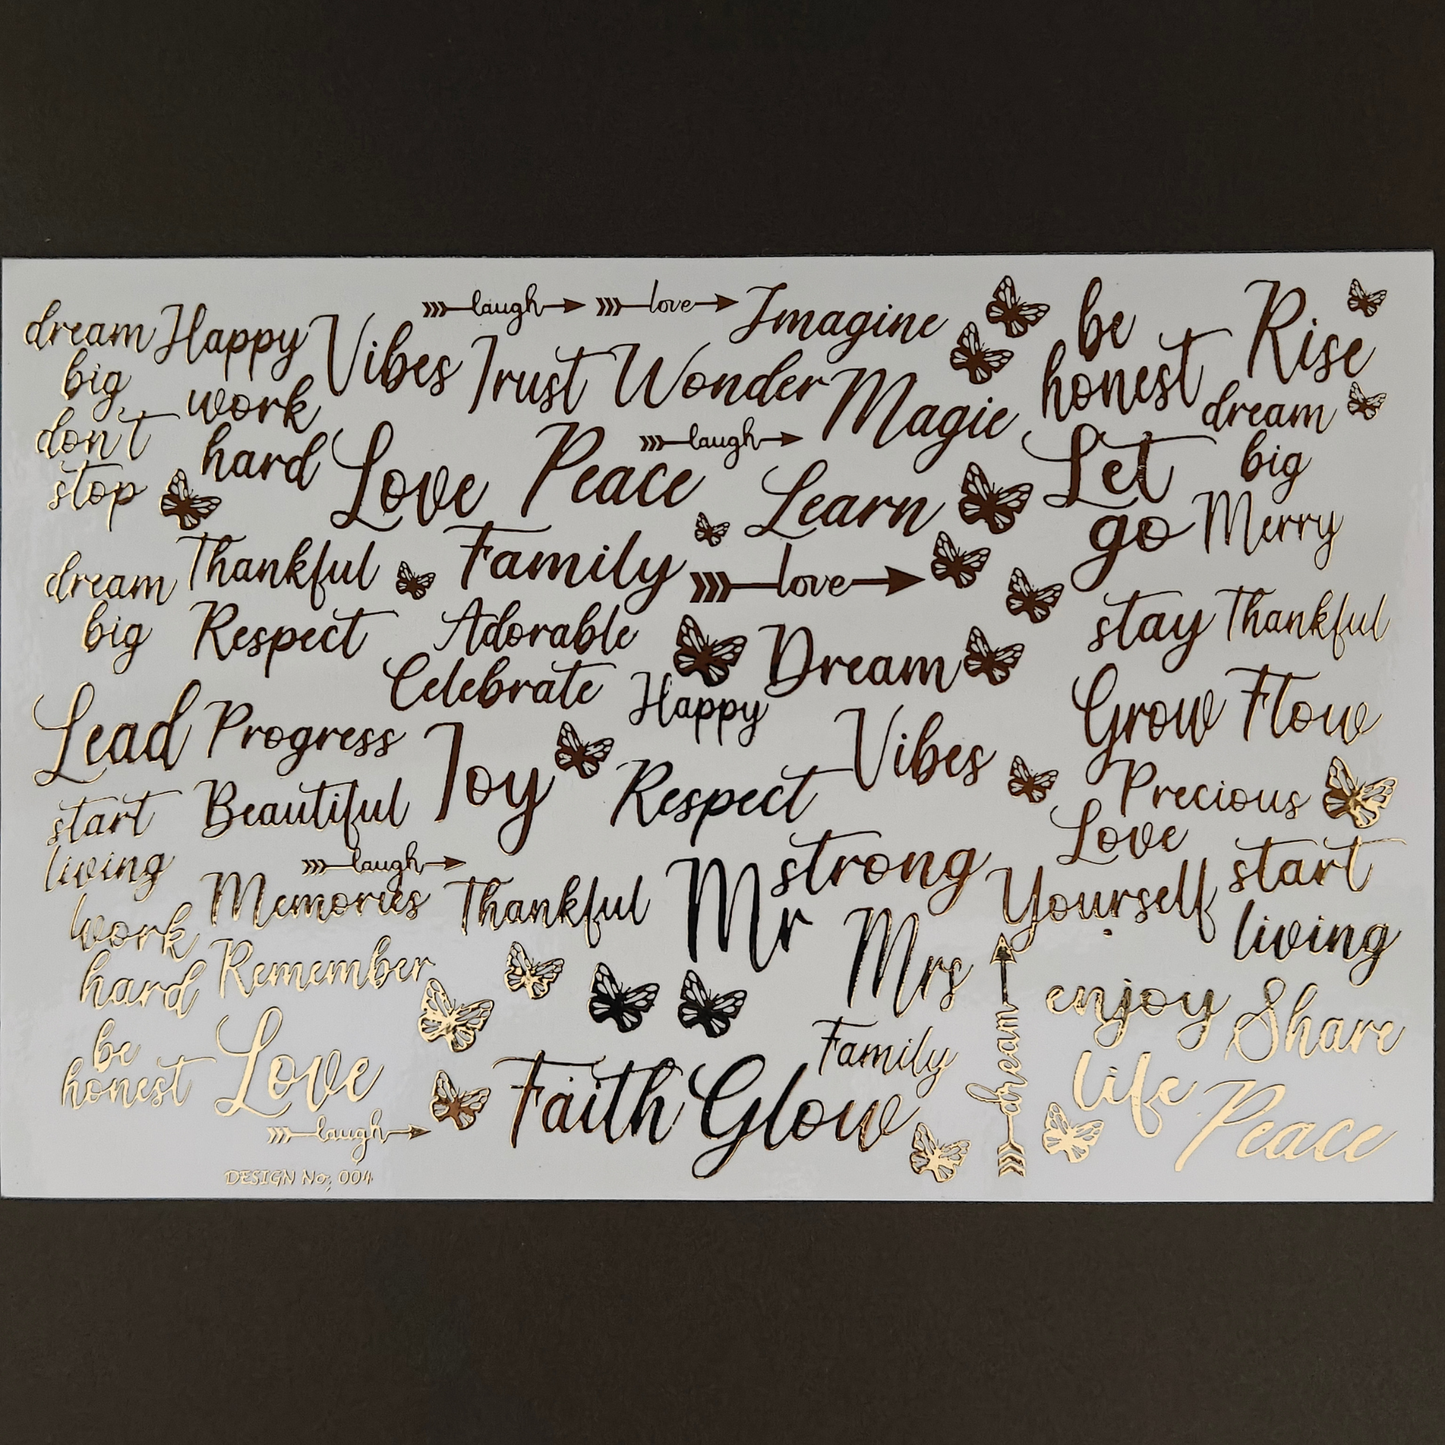 dream
big
don't
stop
Happy
work
hard
Vibes
laugh
love
Imagine
Trust
Wonder
Magic
be
honest
Rise
dream
big
Love
Peace
laugh
Learn
Let
go
Merry
dream
big
Thankful
Family
love
Respect
Adorable
Celebrate
Happy
Dream
stay
Thankful
Lead
Progress
Joy
Vibes
Grow
Flow
start
living
Beautiful
Respect
Precious
laugh
Memories
Thankful
Mr
strong
Love
Yourself
start
living
work
hard
Remember
Mrs
enjoy
life
Share
be
honest
Love
laugh
Faith
Glow
Family
dream
Peace
DESIGN No; 004